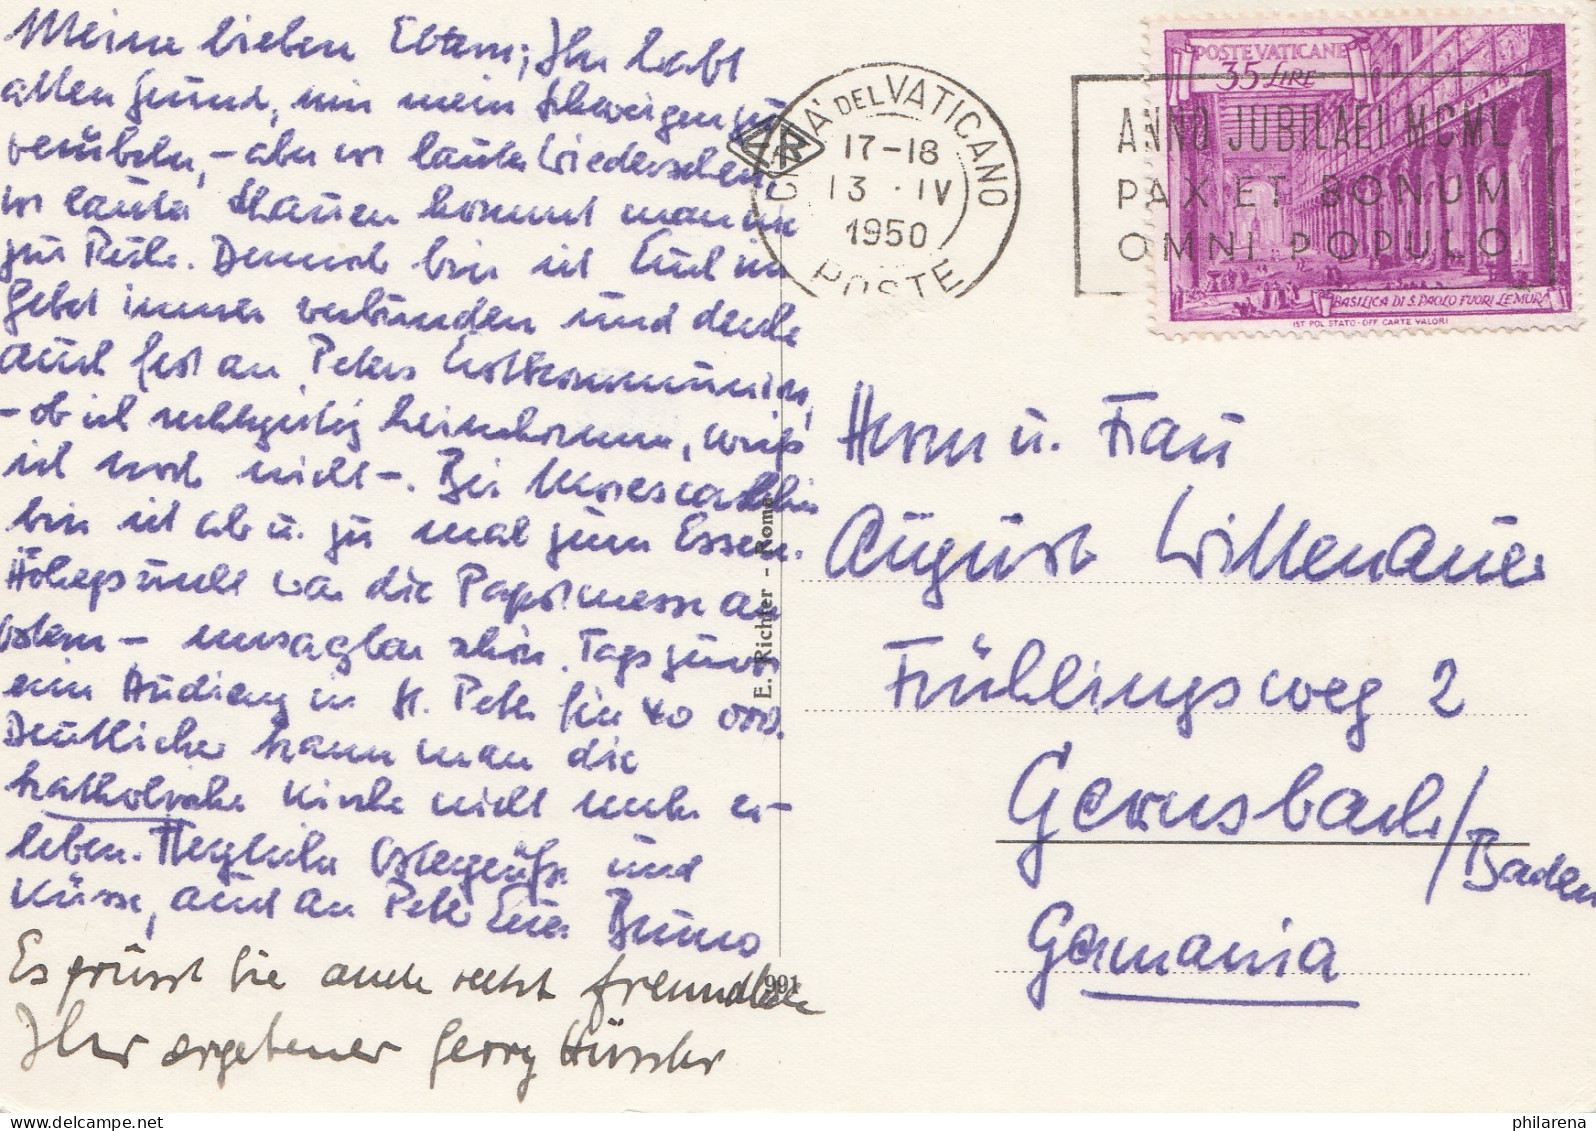 Meine lieben Eltern, Ihr habt
allen Grund, mir mein Schweigen zu
verübeln, – aber vor lauter Wiedersehen,
vor lauter Schauen kommt man nie
zur Ruhe. Dennoch bin ich Euch im
Gebet immer verbunden und denke
auch fest an Peters Erstkommunion,
– ob ich rechtzeitig heimkomme, weiß
ich noch nicht –. Bei
bin ich ab u. zu mal zum Essen.
Höhepunkt war die Papstmesse an
Ostern – unsagbar schön. Tags zuvor
eine Audienz in St. Peter für 40 000.
Deutlicher kann man die
katholische Kirche nicht mehr er-
leben. Herzliche Ostergrüße und
Küsse, auch an Peter Euer Bruno
Es grüsst Sie auch recht freundlich
Ihr ergebener Georg Hüssler
E. Richter - Roma
991
CITTÀ DEL VATICANO
17-18
13 · IV
1950
POSTE
ANNO JUBILAEI MCML
PAX ET BONUM
OMNI POPULO
POSTE VATICANE
35 LIRE
BASILICA DI S. PAOLO FUORI LE MURA
IST. POL. STATO - OFF. CARTE VALORI
Herrn u. Frau
August Willenauer
Frühlingsweg 2
Gernsbach/Baden
Germania
philarena